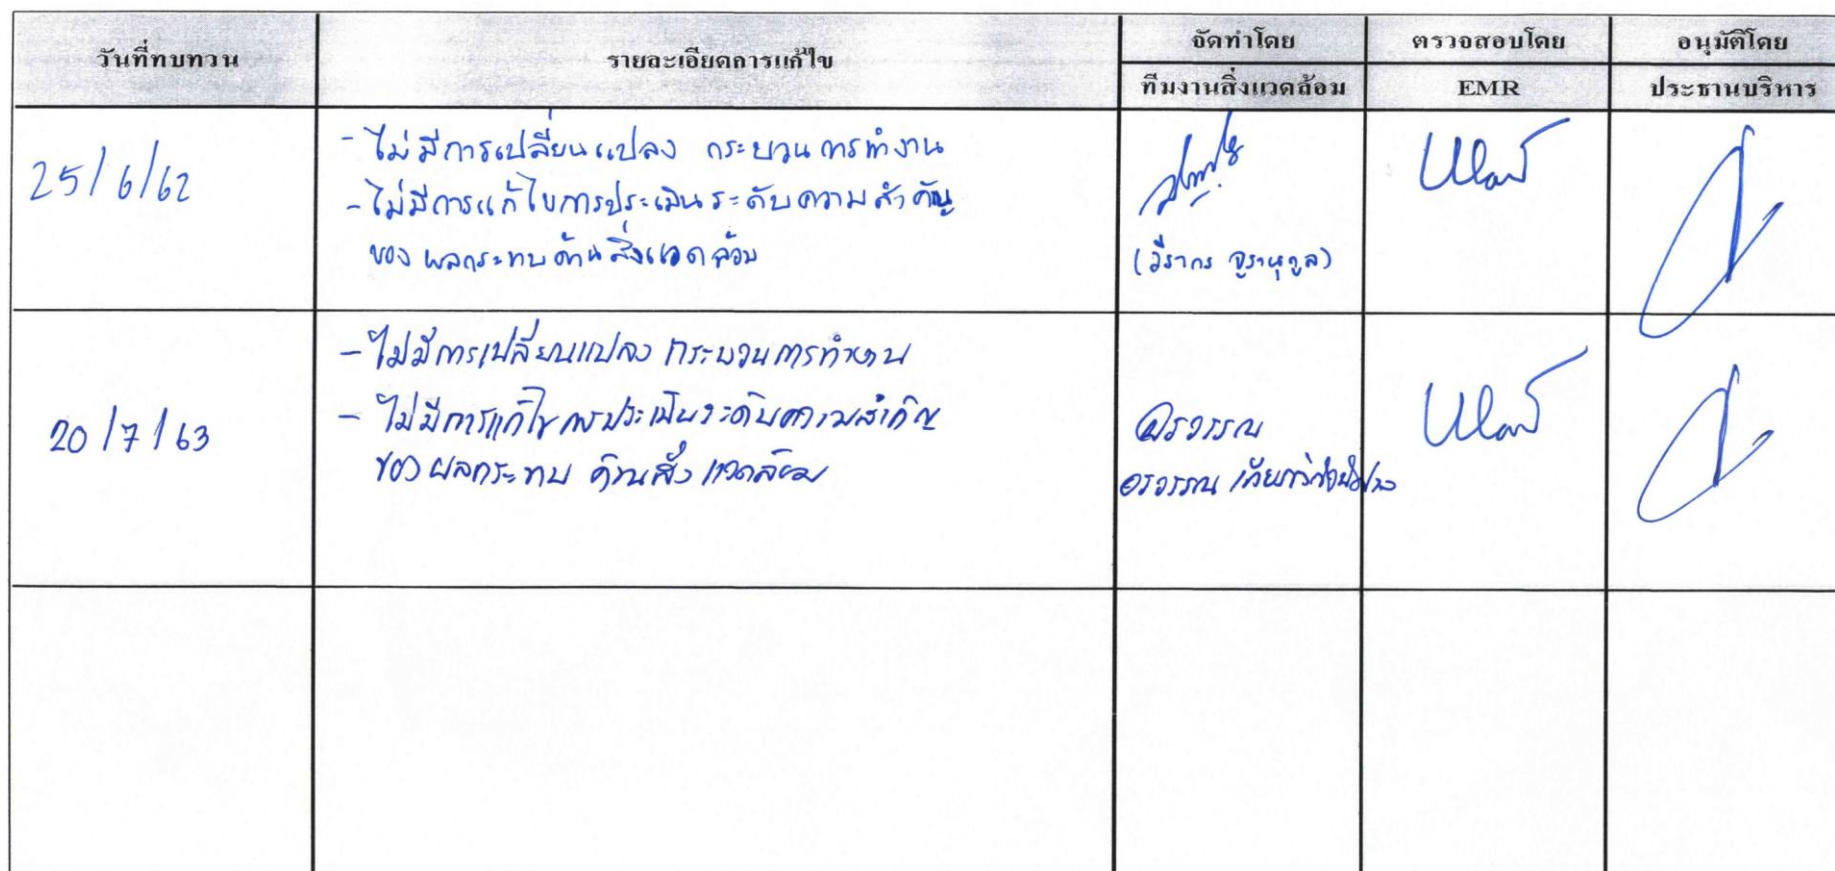 วันที่ทบทวน
รายละเอียดการแก้ไข
จัดทำโดย
ตรวจสอบโดย
อนุมัติโดย
ทีมงานสิ่งแวดล้อม
EMR
ประธานบริหาร
25/6/62
- ไม่มีการเปลี่ยนแปลง กระบวนการทำงาน
- ไม่มีการแก้ไขการประเมินระดับความสำคัญ
ของผลกระทบด้านสิ่งแวดล้อม
20/7/63
- ไม่มีการเปลี่ยนแปลง กระบวนการทำงาน
- ไม่มีการแก้ไขการประเมินระดับความสำคัญ
ของผลกระทบ ด้านสิ่งแวดล้อม
อรวรรณ
อรวรรณ